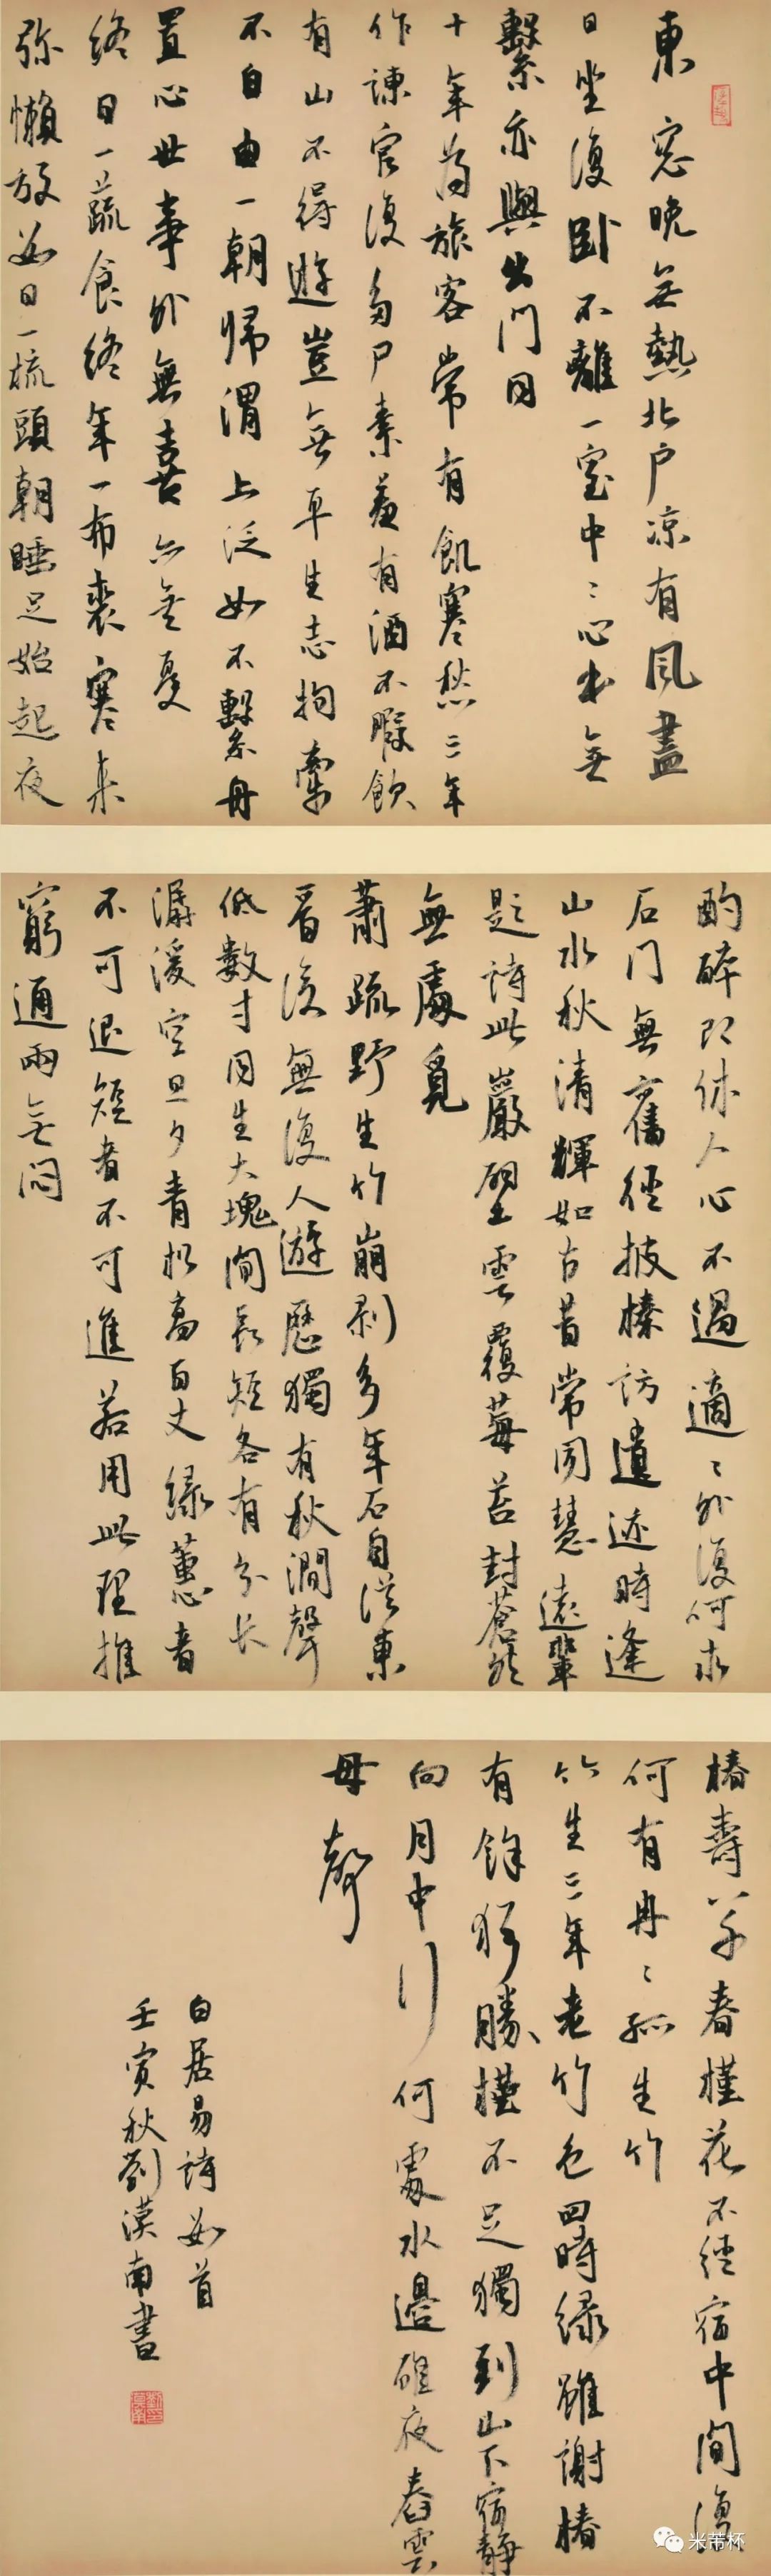 東窓晚無熱北户凉有風盡
日坐復卧不離一室中〻心本無
繫亦與出門同
十年為旅客常有飢寒愁三年
作諫官復多尸素羞有酒不暇飲
有山不得遊豈無平生志拘牽
不自由一朝歸渭上泛如不繫舟
置心世事外無喜亦無憂
終日一蔬食終年一布裘寒來
弥懶放數日一梳頭朝睡足始起夜
酌醉即休人心不過適〻外復何求
石門無舊徑披榛訪遺迹時逢
山水秋清輝如古昔常聞慧遠輩
題詩此巖壁雲覆莓苔封蒼然
無處覓
蕭疏野生竹崩剥多年石自從東
晋後無復人遊歷獨有秋澗聲
潺湲空旦夕青松高百丈綠蕙
低數寸同生大塊間長短各有分長
者不可退短者不可進若用此理推
窮通兩無悶
椿壽八千春槿花不經宿中間復
何有冉〻孤生竹
竹生三年老竹色四時綠雖謝椿
有餘猶勝槿不足獨到山下宿静
向月中行何處水邊碓夜舂雲
母聲
白居易詩數首
壬寅秋劉漠南書
米芾杯